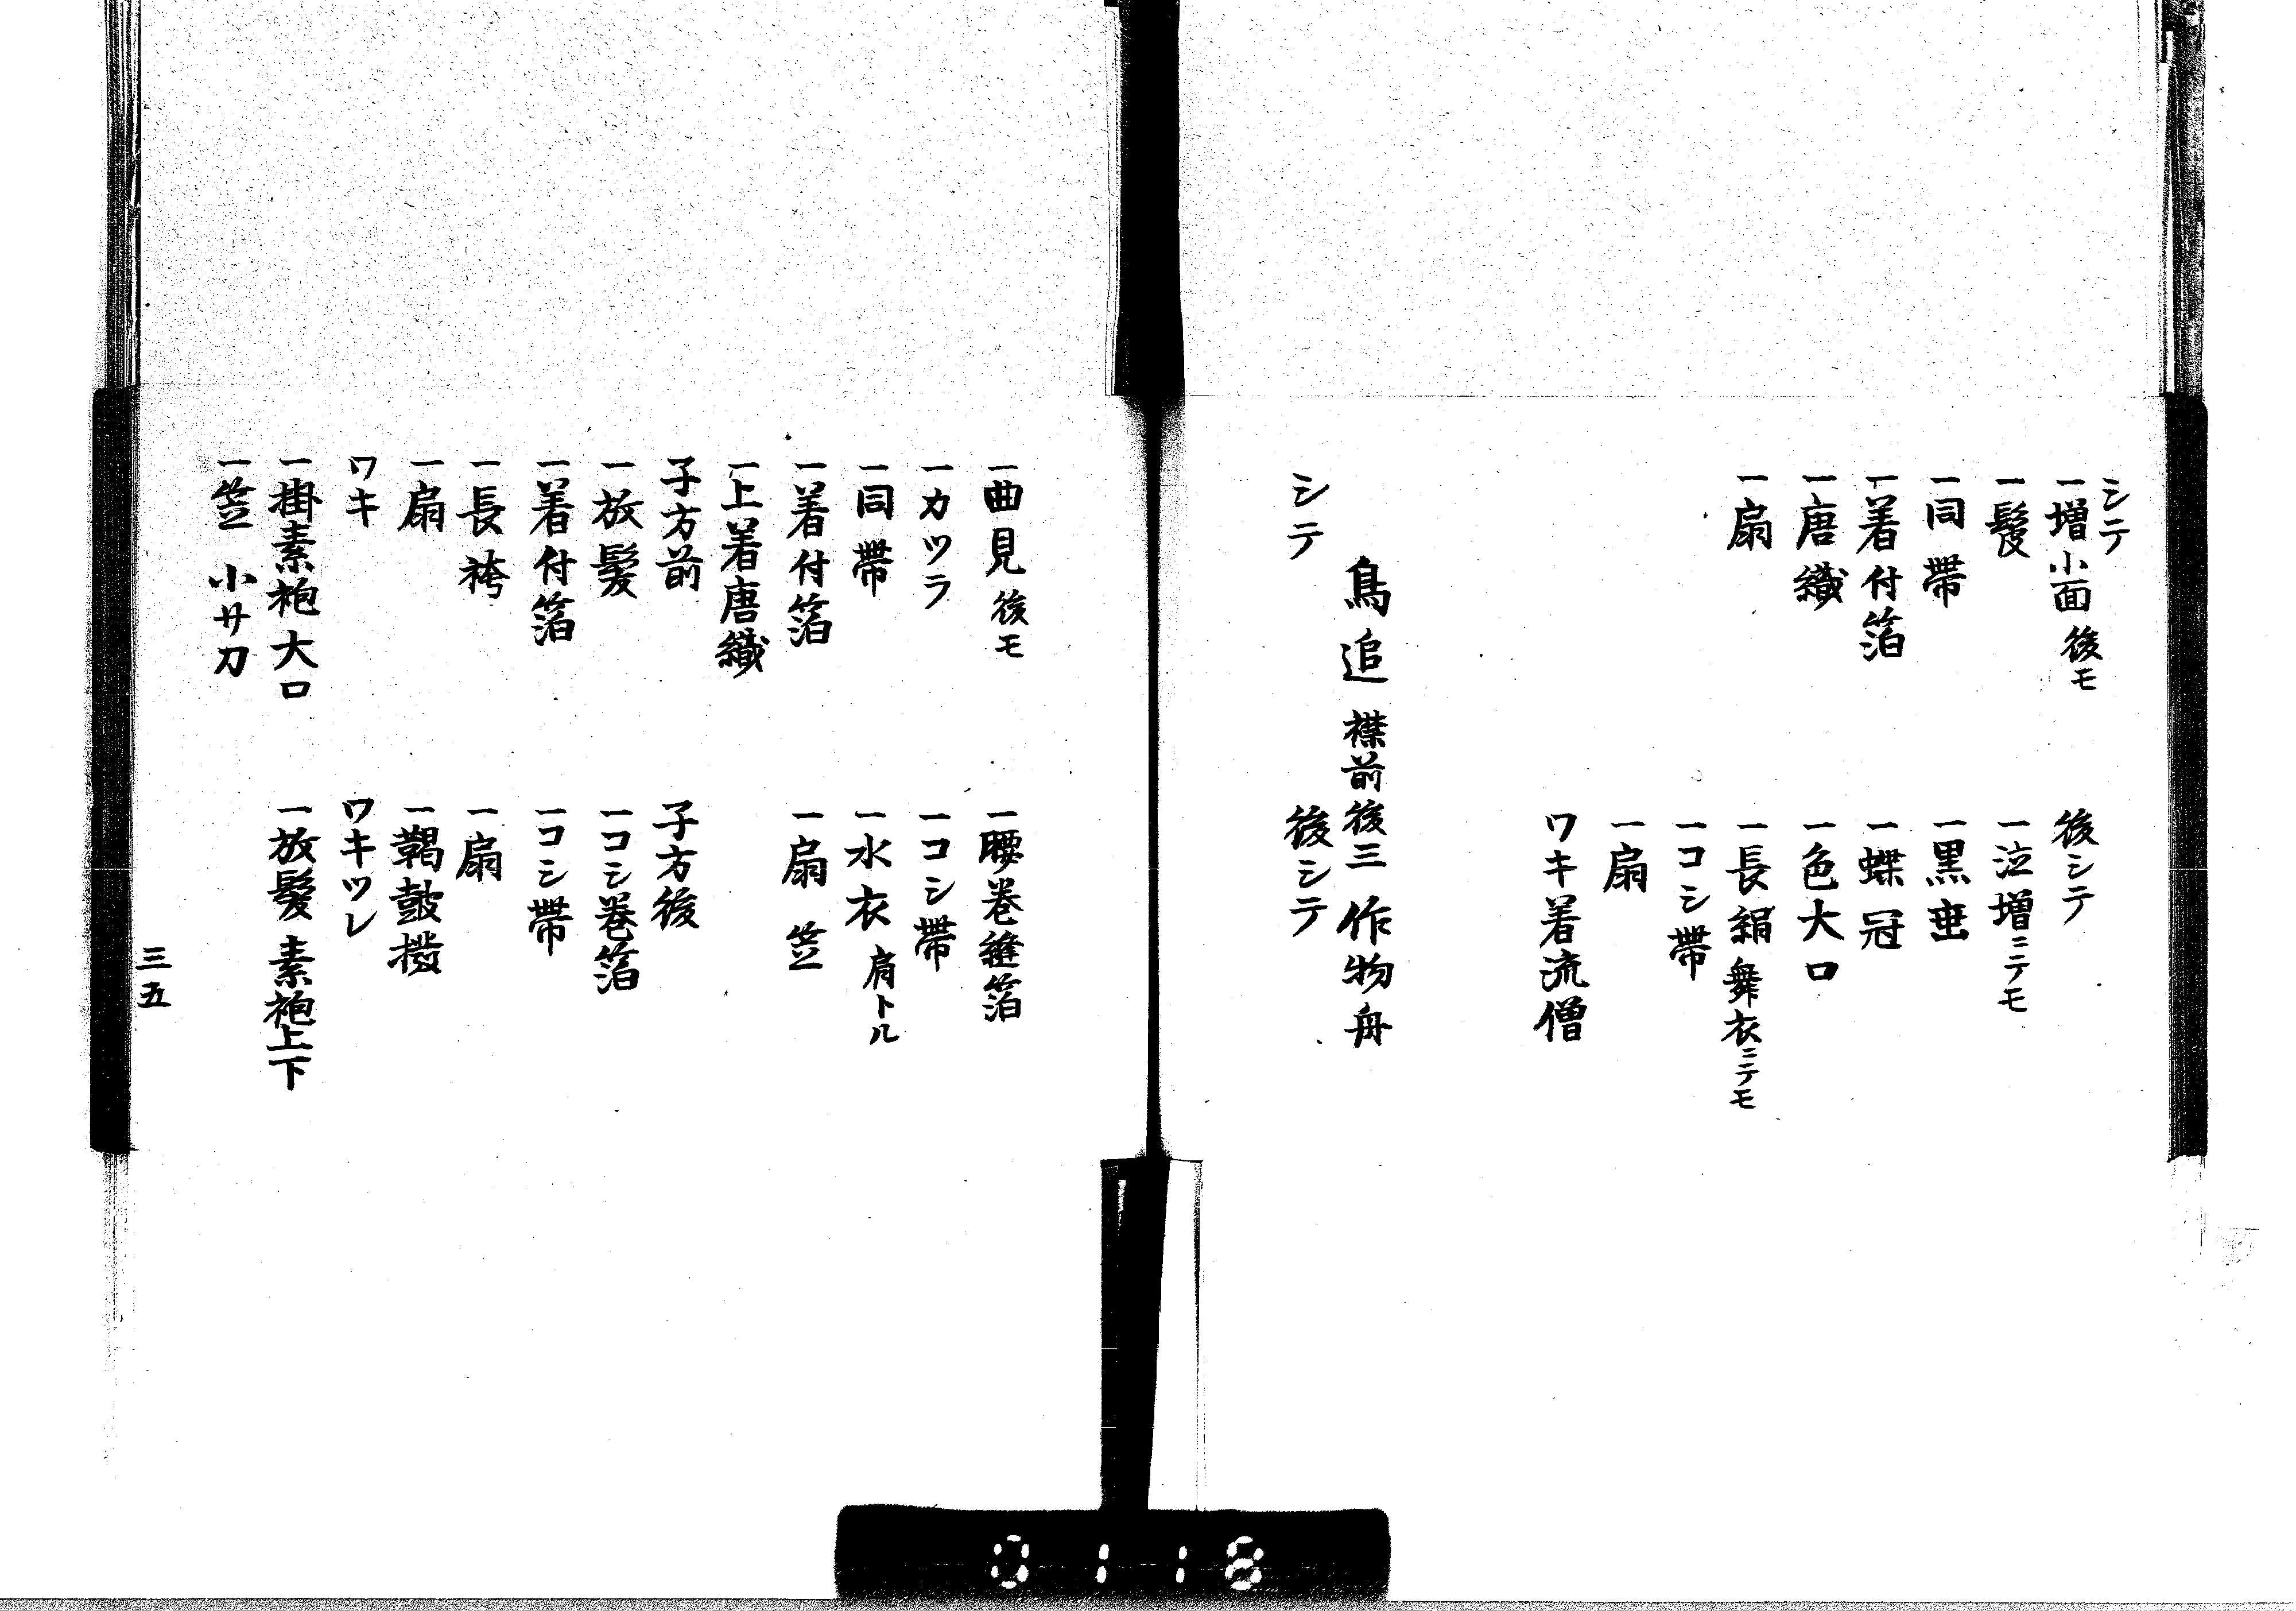 シテ
一増小面後モ
一鬘
一同帯
一着付箔
一唐織
一扇
後シテ
一泣増ニテモ
一黒垂
一蝶冠
一色大口
一長絹舞衣ニテモ
一コシ帯
一扇
ワキ着流僧
鳥追 襟前後三作物舟
シテ
後シテ
一曲見後モ
一カツラ
一同帯
一着付箔
一上着唐織
子方前
一放髪
一着付箔
一長袴
一扇
ワキ
一掛素袍大口
一笠 小サ刀
一腰巻縫箔
一コシ帯
一水衣肩トル
一扇 笠
子方後
一コシ巻箔
一コシ帯
一扇
一鞨鼓撥
ワキツレ
一放髪素袍上下
三五
0118